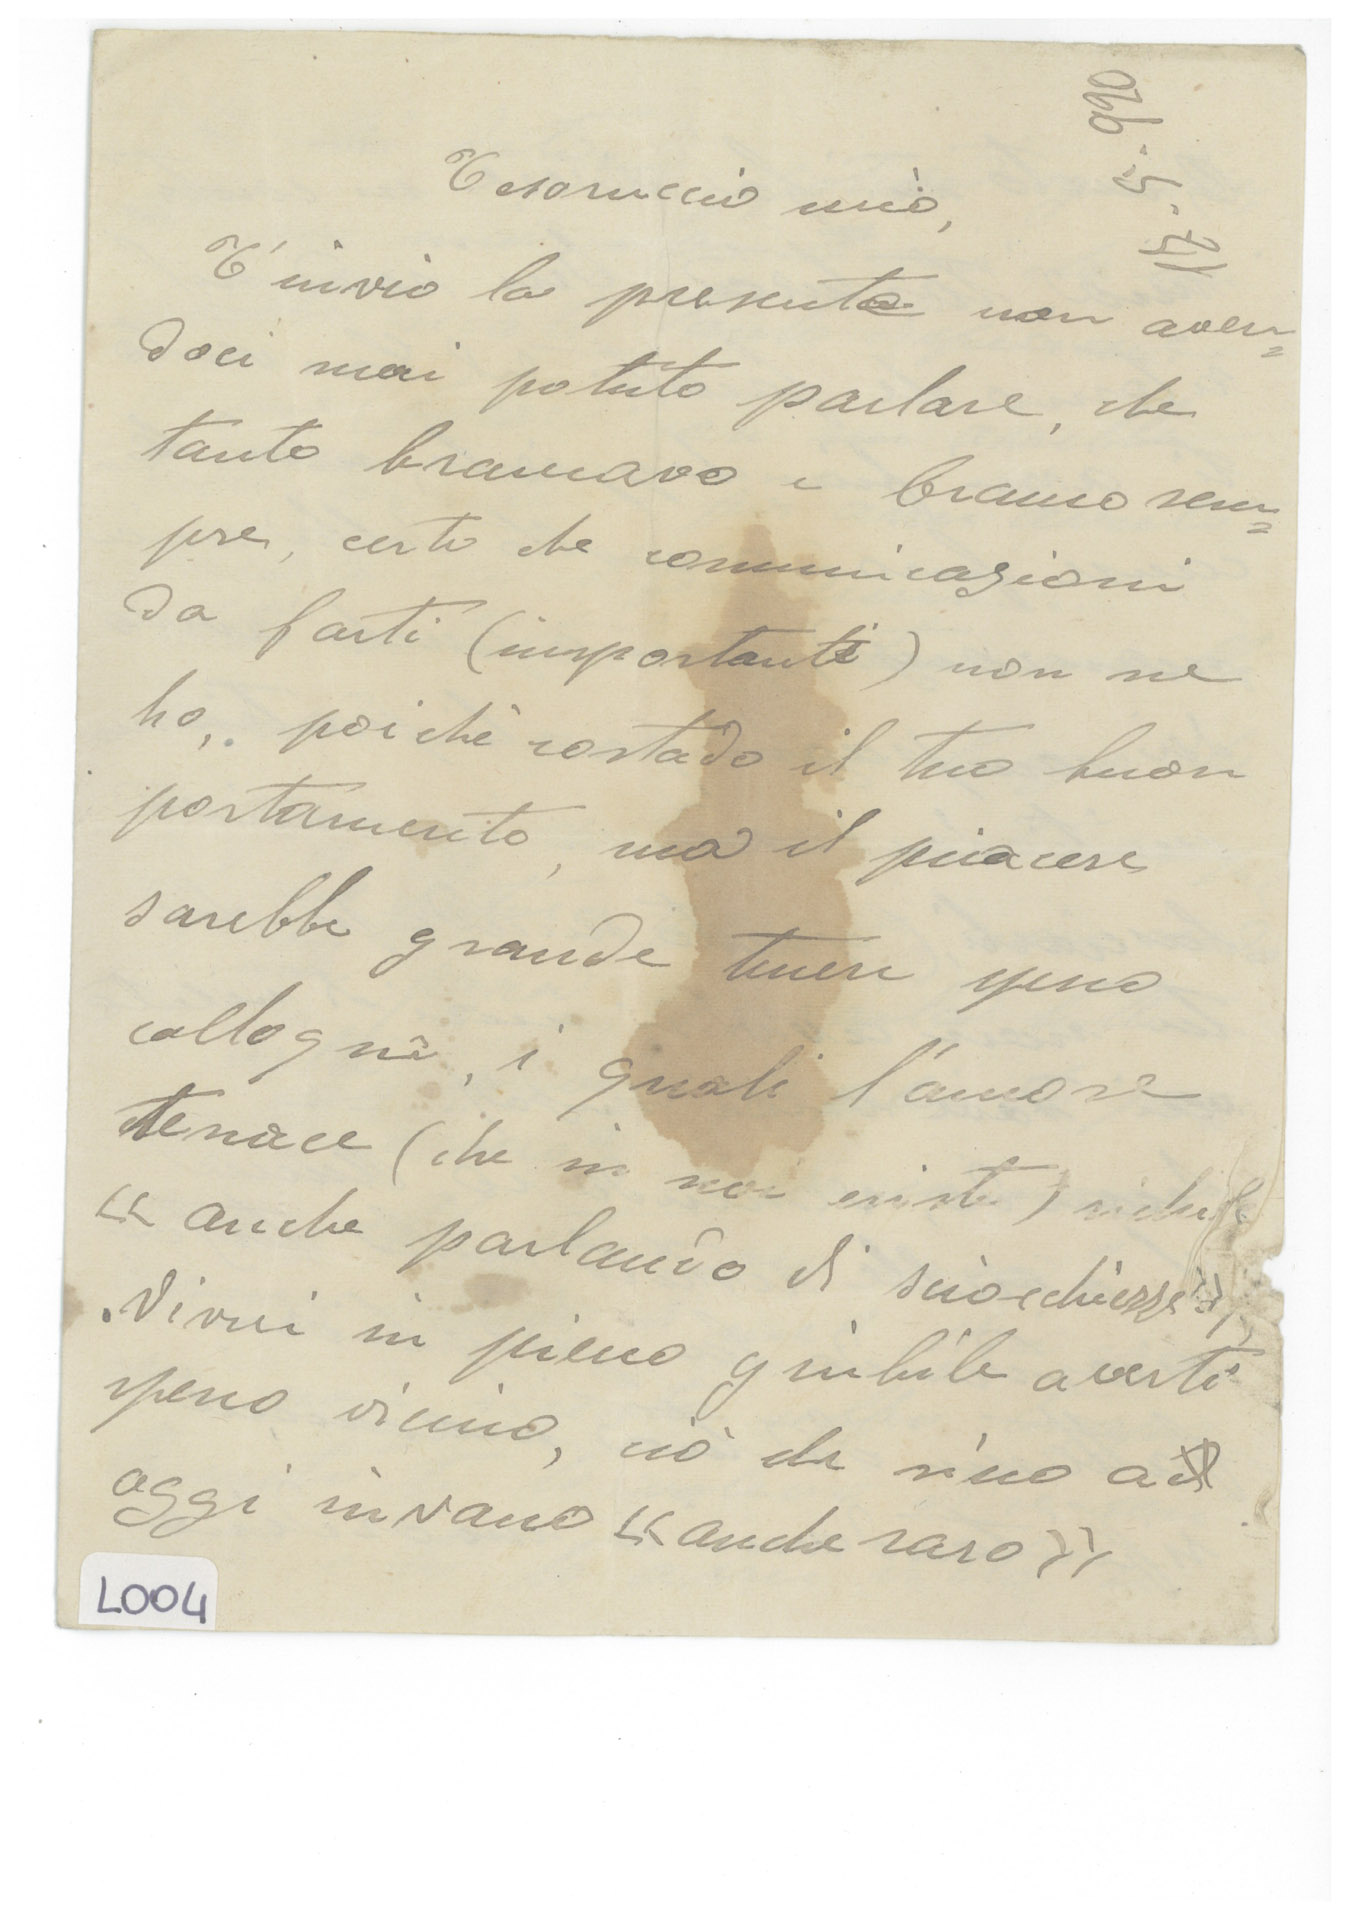 15. 5. 920
Tesoruccio mio,
T'invio la presente non aven=
doci mai potuto parlare, che
tanto bramavo e bramo sem=
pre, certo che comunicazioni
da farti (importanti) non ne
ho, poichè costado il tuo buon
portamento, ma il piacere
sarebbe grande tenere speso
collogni, i quali l'amore
tenace (che in noi esiste) richiede
"anche parlando di sciocchezze",
Vivrei in pieno giubile averti
speso vicino, ciò che sino ad
oggi invano "anche raro"
L004